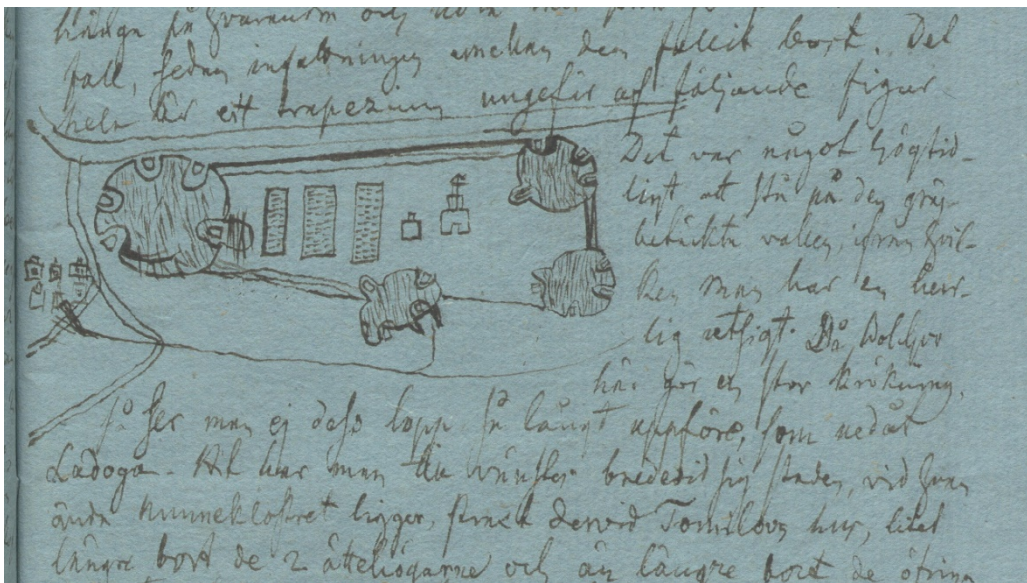 hänga på hvarandra och
fall, sedan infattningen emellan dem fallit bort. Det
hela är ett trapezium ungefär af följande figur
Det var något högtid-
ligt att stå på den gräs-
betäckta vallen, ifrån hvil-
ken man har en herr-
lig utsigt. Då Volchov
här gör en stor krökning,
så ser man ej dess lopp så långt uppföre, som nedåt
Ladoga. Åt har man till vänster bredvid sig staden, vid hvars
ända Nunneklostret ligger, straxt dervid Tomilovs hus, litet
längre bort de 2 ättehögarne och än längre bort de öfriga